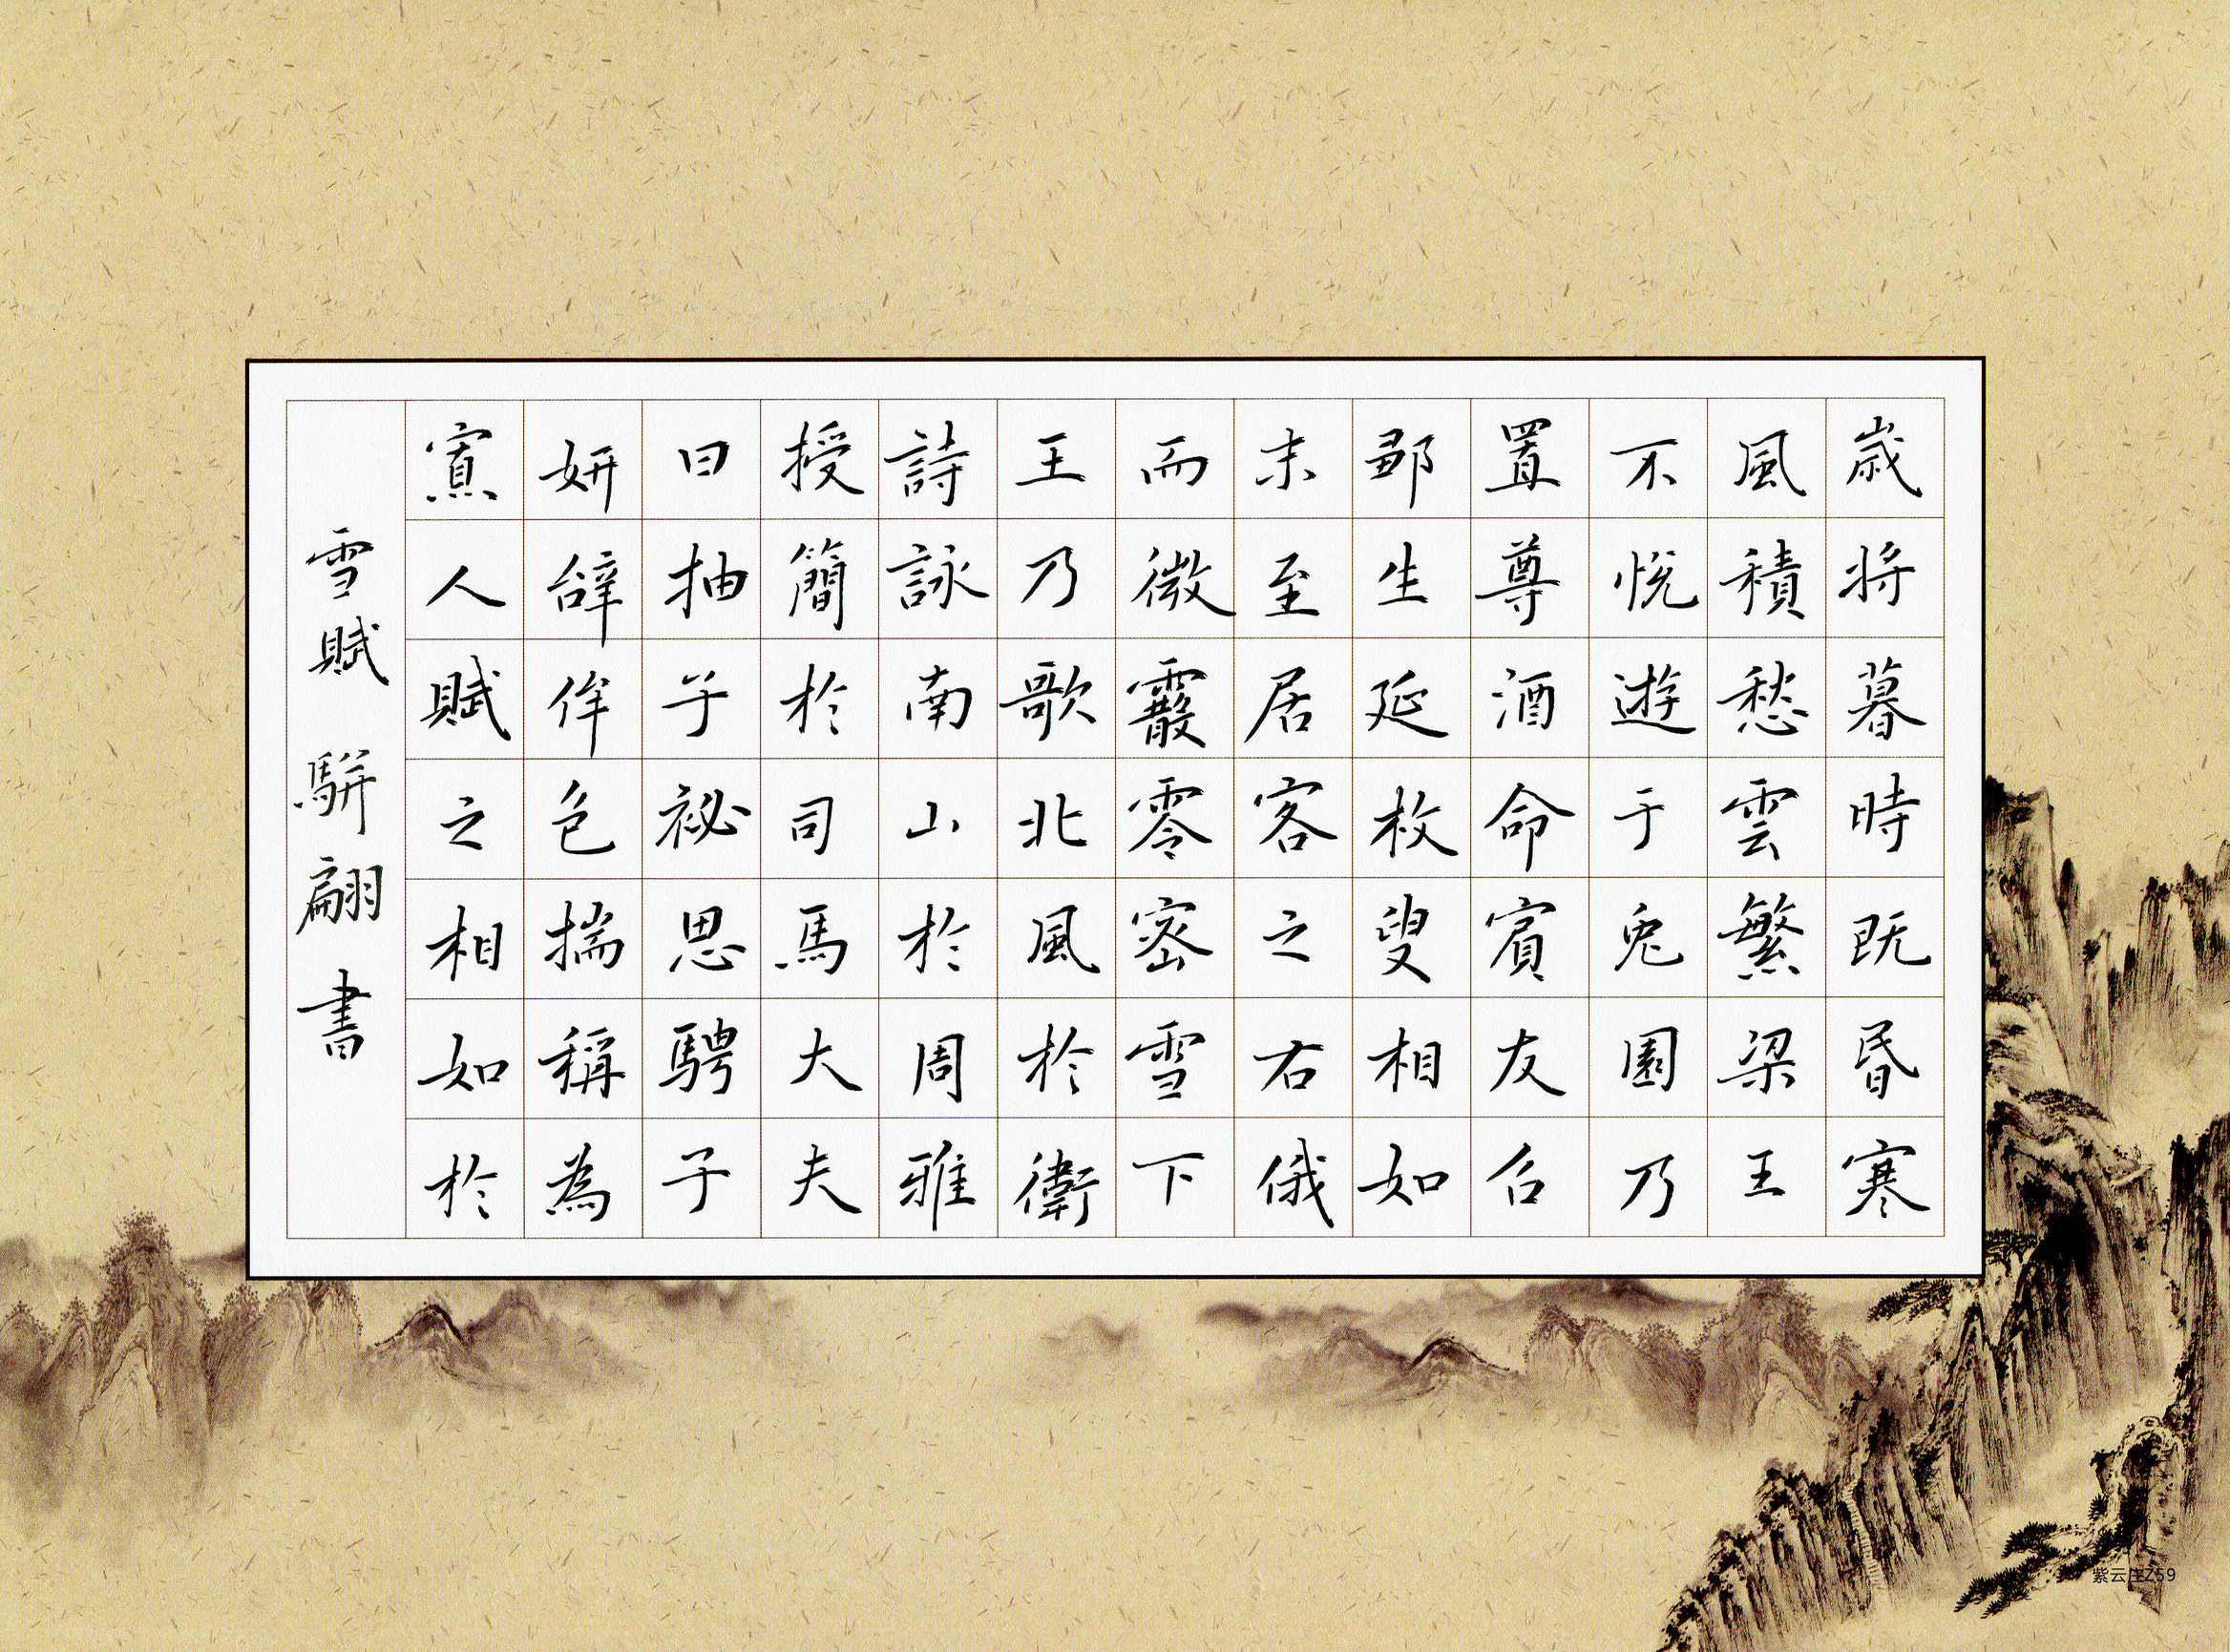 歲將暮時既昏寒
風積愁雲繁梁王
不悅遊于兔園乃
置尊酒命賓友召
鄒生延枚叟相如
末至居客之右俄
而微霰零密雪下
王乃歌北風於衛
詩詠南山於周雅
授簡於司馬大夫
曰抽子祕思騁子
妍辭侔色揣稱為
寡人賦之相如於
雪賦 駢翩書
紫云庄Z59